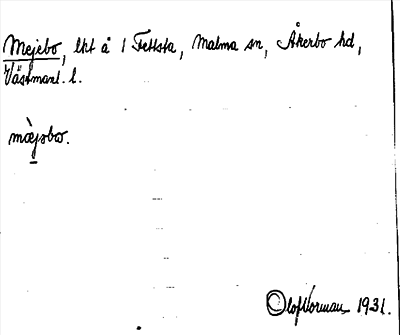 Mejebo, lht å 1 Fettsta, Malma sn, Åkerbo hd,
Västmanl. l.
mæ̀jsbω.
Olof Norman 1931.